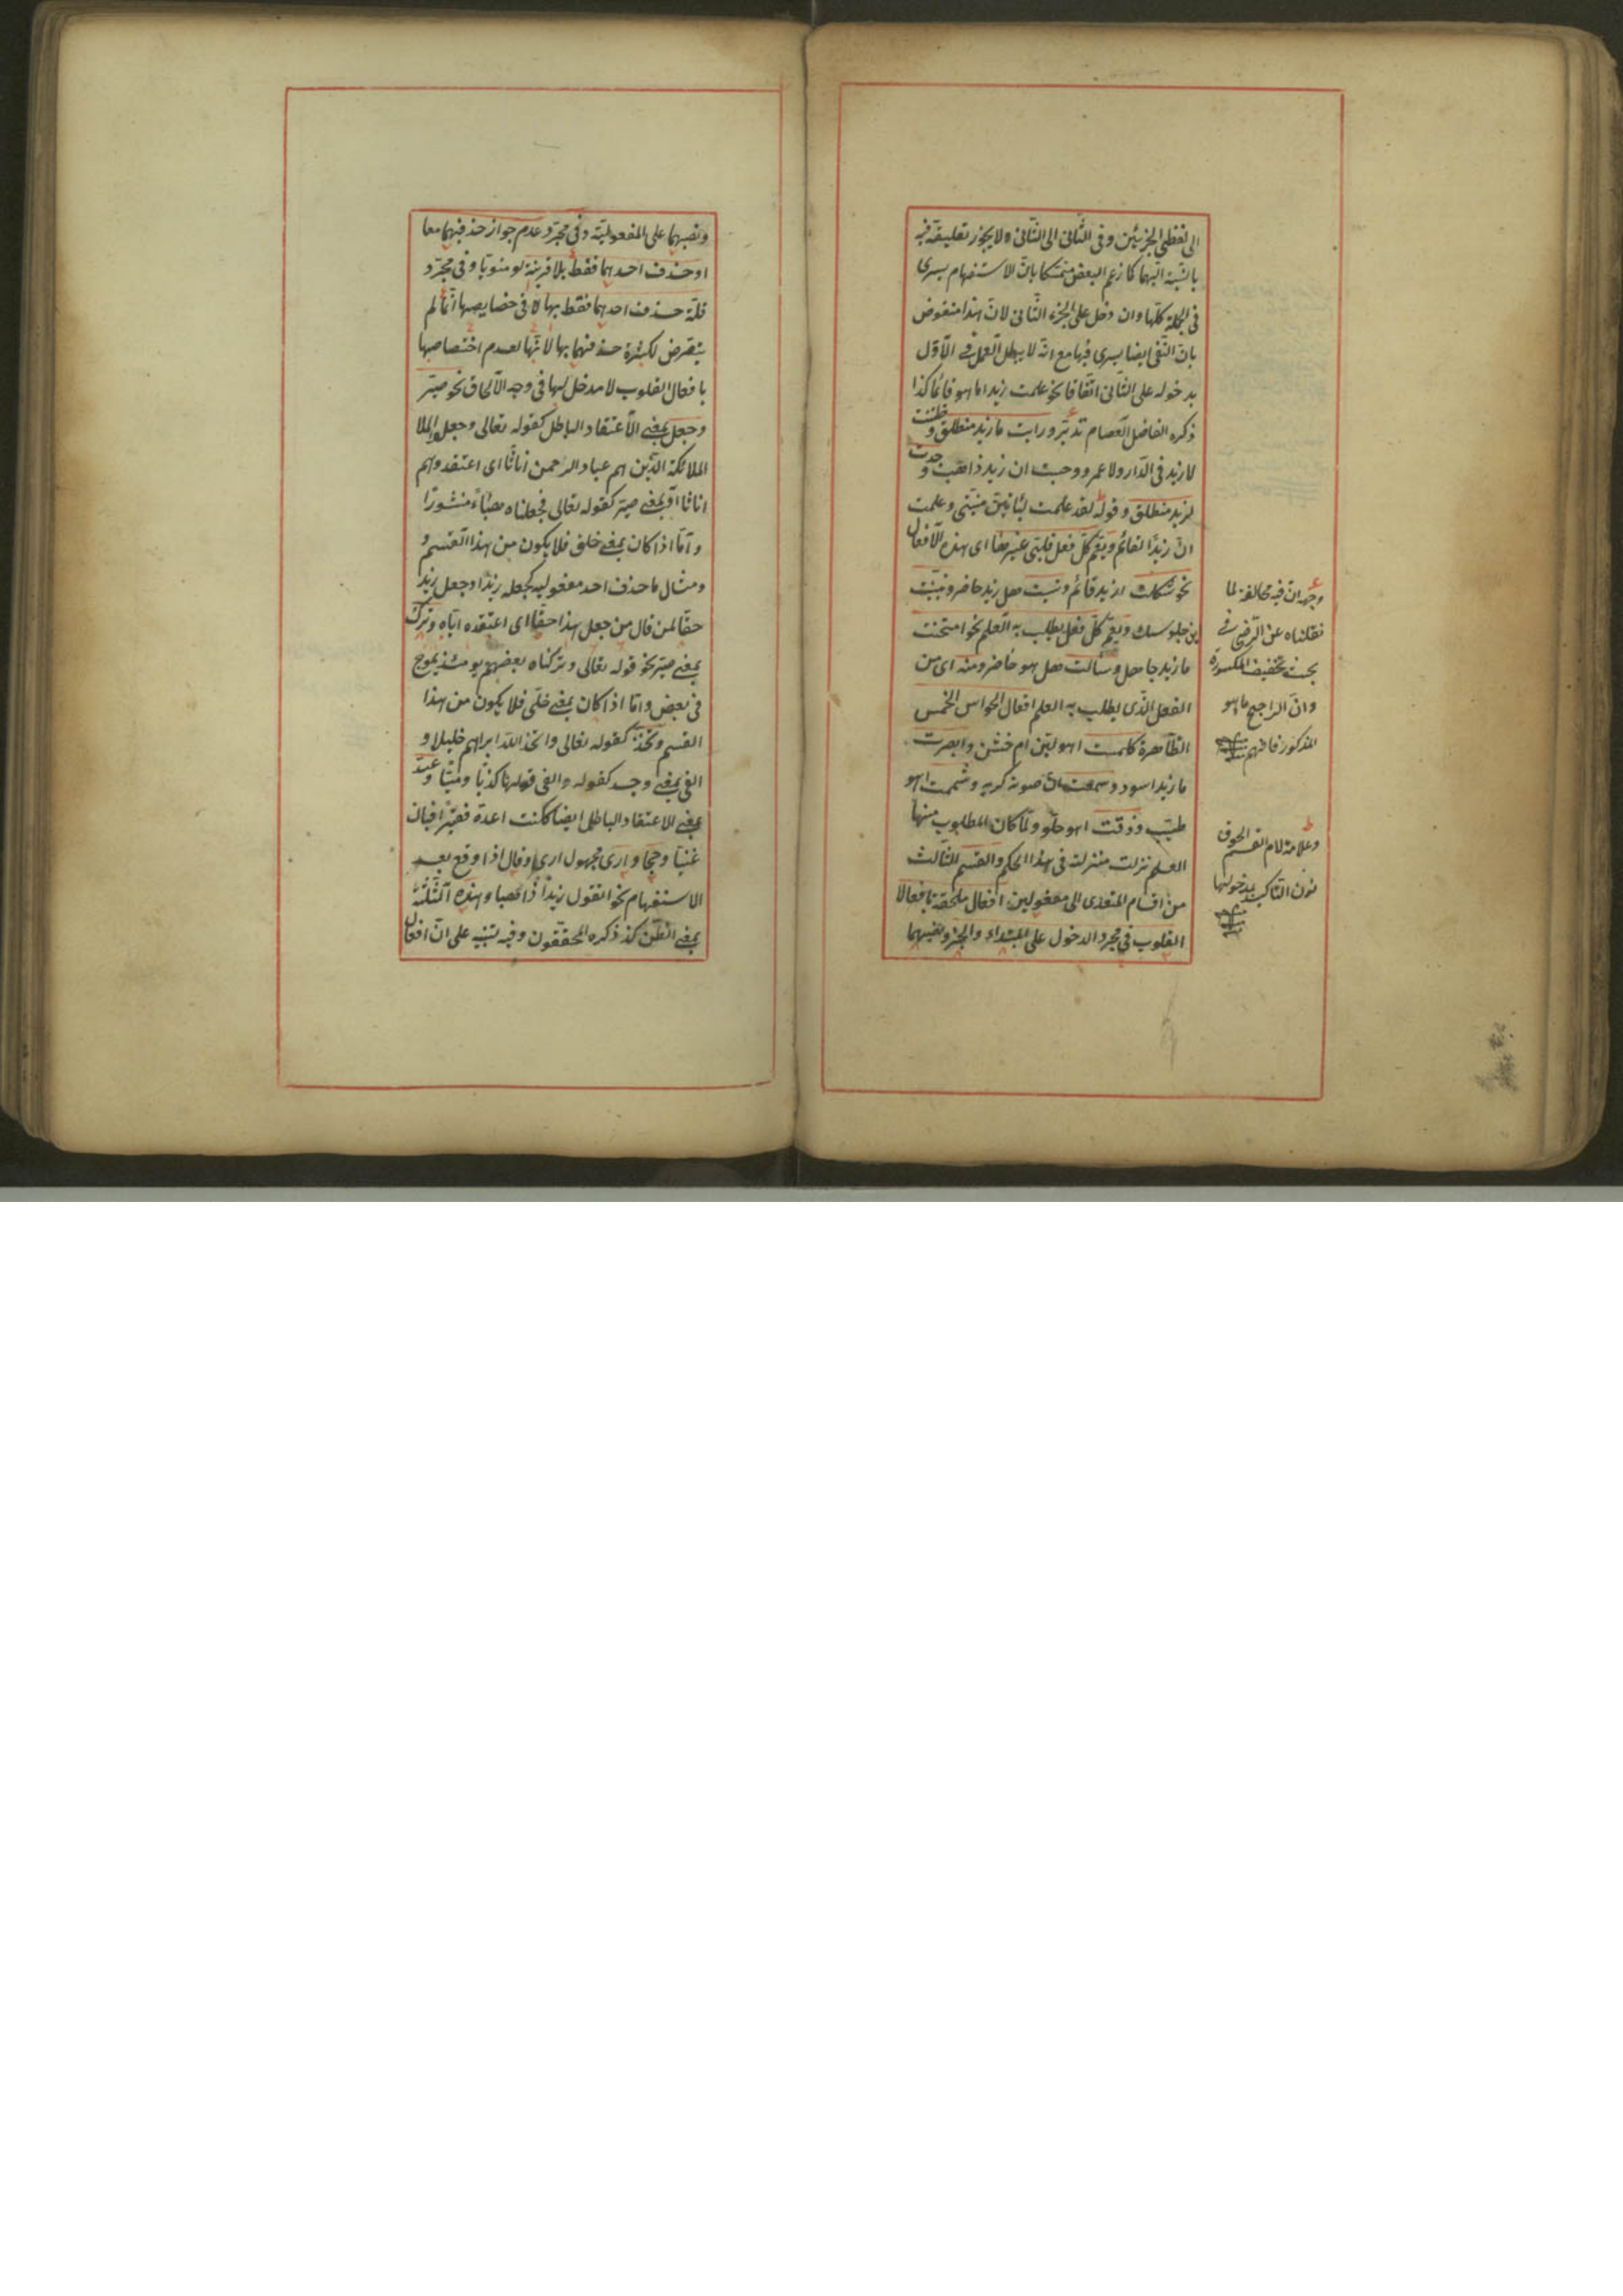 الى لفظي الجزئين وفى الثّانى الى الثّانى ولا يجوز تعليقه فيه
بالنّسبة اليهما كما زعم البعض متمسّكا بانّ الاستفهام يسرى
فى الجملة كلّها وان دخل على الجزء الثّانى لانّ هذا منقوض
بانّ النّفى ايضا يسرى فيها مع انّه لا يبطل العمل فى الاوّل
بدخوله على الثّانى اتّفاقا نحو علمت زيدا ما هو قائما كذا
ذكره الفاضل العصام تدبّر ورايت ما زيد منطلق وظننت
لا زيد فى الدّار ولا عمرو وحسبت ان زيد ذاهب ووجدت
لزيد منطلق وقوله لقد علمت لتاتينّ منيّتى وعلمت
انّ زيدا لقائم ويعمّ كلّ فعل قلبىّ غيرها اى هذه الافعال
نحو شككت ازيد قائم ونسيت هل زيد حاضر وتبيّنت
اين جلوسك ويعمّ كلّ فعل يطلب به العلم نحو امتحنت
ما زيد جاهل وسألت هل هو حاضر ومنه اى من
الفعل الّذى يطلب به العلم افعال الحواس الخمس
الظّاهرة كلمست اهو ليّن ام خشن وابصرت
ما زيد اسود وسمعت انّ صوته كريه وشممت اهو
طيّب وذقت اهو حلو ولمّا كان المطلوب منها
العلم نزلت منزلته فى هذا الحكم والقسم الثّالث
من اقسام المتعدى الى مفعولين افعال ملحقة بافعال
القلوب فى مجرد الدخول على المبتداء والخبر ونصبهما
وجهه انّ فيه مخالفة لما
نقلناه عن الرّضى فى
بحث تخفيف المكسورة
وانّ الراجح ما هو
المذكور فافهم
وعلامة لام القسم لحوق
نون التاكيد بمدخولها
ونصبهما على المفعوليّة وفى مجرّد عدم جواز حذفهما معا
او حذف احدهما فقط بلا قرينة لو منويّا وفى مجرّد
قلّة حذف احدهما فقط بها لا فى خصايصها انّما لم
يتعرض لكثرة حذفهما بها لانّها لعدم اختصاصها
بافعال القلوب لا مدخل لها فى وجه الالحاق نحو صيّر
وجعل بمعنى الاعتقاد الباطل كقوله تعالى وجعلوا الملا
الملائكة الّذين هم عباد الرحمن اناثا اى اعتقدوهم
اناثا او بمعنى صيّر كقوله تعالى فجعلناه هباءً منثورا
وامّا اذا كان بمعنى خلق فلا يكون من هذا القسم و
ومثال ما حذف احد مفعوليه كجعله زيدا وجعل زيد
حقا لمن قال من جعل هذا حقّا اى اعتقده ايّاه وترك
بمعنى صيّر نحو قوله تعالى وتركناه بعضهم يومئذ يموج
فى بعض وامّا اذا كان بمعنى خلّى فلا يكون من هذا
القسم وتخذ كقوله تعالى واتخذ اللّه ابراهيم خليلا و
الفى بمعنى وجد كقوله والفى قولها كذبا ومينا وعدّ
بمعنى الاعتقاد الباطل ايضا ككنت اعدّه فقيرا فبان
غنيّا وحجا وارى مجهول ارى وقال اذا وقع بعد
الاستفهام نحو اتقول زيدا ذاهبا وهذه الثّلثة
بمعنى الظّن كذ ذكره المحققون وفيه تنبيه على انّ افعال